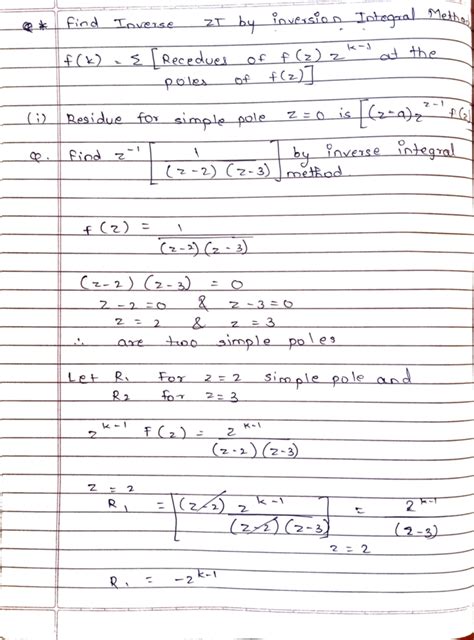 Q* Find Inverse ZT by inversion Integral Method
f(k) = Σ [Recedues of f(z) z^k-1 at the
poles of f(z)]
(i) Residue for simple pole z=0 is [(z-a)z^z-1 f(z
Q. Find z^-1 [1/(z-2)(z-3)] by inverse integral
method.
f(z) = 1/(z-2)(z-3)
(z-2)(z-3) = 0
z-2=0 & z-3=0
z = 2 & z = 3
∴ are two simple poles
Let R1 For z=2 simple pole and
R2 for z=3
z^k-1 f(z) = z^k-1/(z-2)(z-3)
z = 2
R1 = [(z-2) z^k-1/(z-2)(z-3)] z=2 = 2^k-1/(2-3)
R1 = -2^k-1